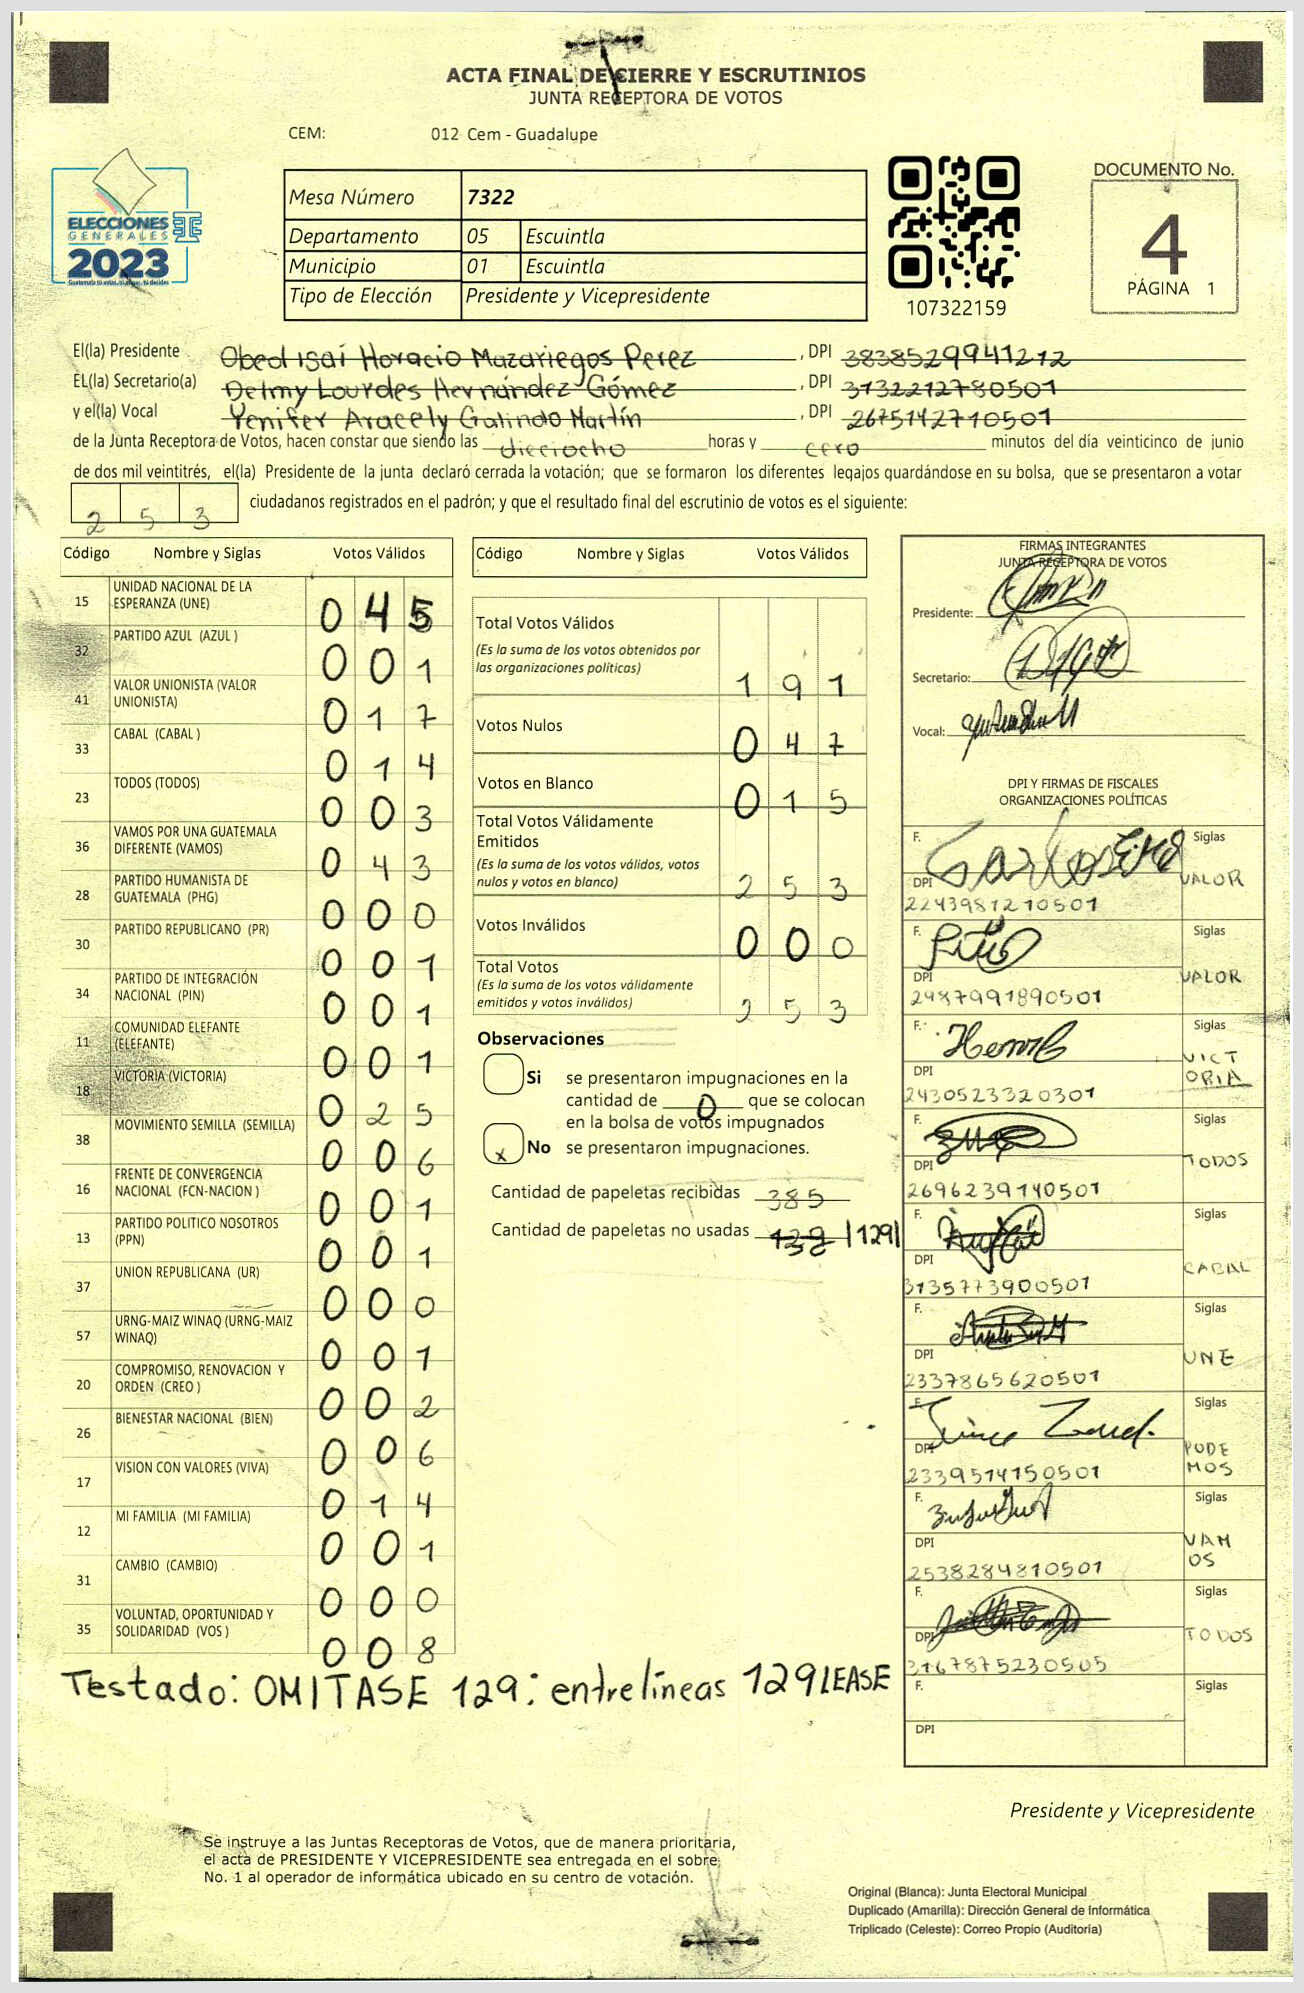 ACTA FINAL DE CIERRE Y ESCRUTINIOS
JUNTA RECEPTORA DE VOTOS
CEM: 012 Cem - Guadalupe
ELECCIONES
GENERALES
2023
Mesa Número 7322
Departamento 05 Escuintla
Municipio 01 Escuintla
Tipo de Elección Presidente y Vicepresidente
107322159
DOCUMENTO No.
4
PÁGINA 1
El(la) Presidente Obed Isaí Horacio Mazariegos Perez , DPI 3838529941212
EL(la) Secretario(a) Delmy Lourdes Hernández Gómez , DPI 3132212780501
y el(la) Vocal Yenifer Aracely Galindo Martín , DPI 2675142710501
de la Junta Receptora de Votos, hacen constar que siendo las dieciocho horas y cero minutos del día veinticinco de junio
de dos mil veintitrés, el(la) Presidente de la junta declaró cerrada la votación; que se formaron los diferentes legajos guardándose en su bolsa, que se presentaron a votar
2 5 3 ciudadanos registrados en el padrón; y que el resultado final del escrutinio de votos es el siguiente:
Código Nombre y Siglas Votos Válidos
15 UNIDAD NACIONAL DE LA ESPERANZA (UNE) 0 4 5
32 PARTIDO AZUL (AZUL ) 0 0 1
41 VALOR UNIONISTA (VALOR UNIONISTA) 0 1 7
33 CABAL (CABAL ) 0 1 4
23 TODOS (TODOS) 0 0 3
36 VAMOS POR UNA GUATEMALA DIFERENTE (VAMOS) 0 4 3
28 PARTIDO HUMANISTA DE GUATEMALA (PHG) 0 0 0
30 PARTIDO REPUBLICANO (PR) 0 0 1
34 PARTIDO DE INTEGRACIÓN NACIONAL (PIN) 0 0 1
11 COMUNIDAD ELEFANTE (ELEFANTE) 0 0 1
18 VICTORIA (VICTORIA) 0 2 5
38 MOVIMIENTO SEMILLA (SEMILLA) 0 0 6
16 FRENTE DE CONVERGENCIA NACIONAL (FCN-NACION ) 0 0 1
13 PARTIDO POLITICO NOSOTROS (PPN) 0 0 1
37 UNION REPUBLICANA (UR) 0 0 0
57 URNG-MAIZ WINAQ (URNG-MAIZ WINAQ) 0 0 1
20 COMPROMISO, RENOVACION Y ORDEN (CREO ) 0 0 2
26 BIENESTAR NACIONAL (BIEN) 0 0 6
17 VISION CON VALORES (VIVA) 0 1 4
12 MI FAMILIA (MI FAMILIA) 0 0 1
31 CAMBIO (CAMBIO) 0 0 0
35 VOLUNTAD, OPORTUNIDAD Y SOLIDARIDAD (VOS ) 0 0 8
Testado: OMITASE 129: entrelíneas 129 LEASE
Código Nombre y Siglas Votos Válidos
Total Votos Válidos
(Es la suma de los votos obtenidos por
las organizaciones políticas) 1 9 1
Votos Nulos 0 4 7
Votos en Blanco 0 1 5
Total Votos Válidamente
Emitidos
(Es la suma de los votos válidos, votos
nulos y votos en blanco) 2 5 3
Votos Inválidos 0 0 0
Total Votos
(Es la suma de los votos válidamente
emitidos y votos inválidos) 2 5 3
Observaciones
Si se presentaron impugnaciones en la
cantidad de 0 que se colocan
en la bolsa de votos impugnados
x No se presentaron impugnaciones.
Cantidad de papeletas recibidas 385
Cantidad de papeletas no usadas |129|
FIRMAS INTEGRANTES
JUNTA RECEPTORA DE VOTOS
Presidente:
Secretario:
Vocal:
DPI Y FIRMAS DE FISCALES
ORGANIZACIONES POLÍTICAS
F. Siglas
DPI VALOR
2243981210501
F. Siglas
DPI VALOR
2487991890501
F. Siglas
DPI VICTORIA
2430523320301
F. Siglas
DPI TODOS
2696239140501
F. Siglas
DPI CABAL
3135773900501
F. Siglas
DPI UNE
2337865620501
F. Siglas
DPI PODEMOS
2339514150501
F. Siglas
DPI VAMOS
2538284810501
F. Siglas
DPI TODOS
3167875230505
F. Siglas
DPI
Presidente y Vicepresidente
Se instruye a las Juntas Receptoras de Votos, que de manera prioritaria,
el acta de PRESIDENTE Y VICEPRESIDENTE sea entregada en el sobre
No. 1 al operador de informática ubicado en su centro de votación.
Original (Blanca): Junta Electoral Municipal
Duplicado (Amarilla): Dirección General de Informática
Triplicado (Celeste): Correo Propio (Auditoría)